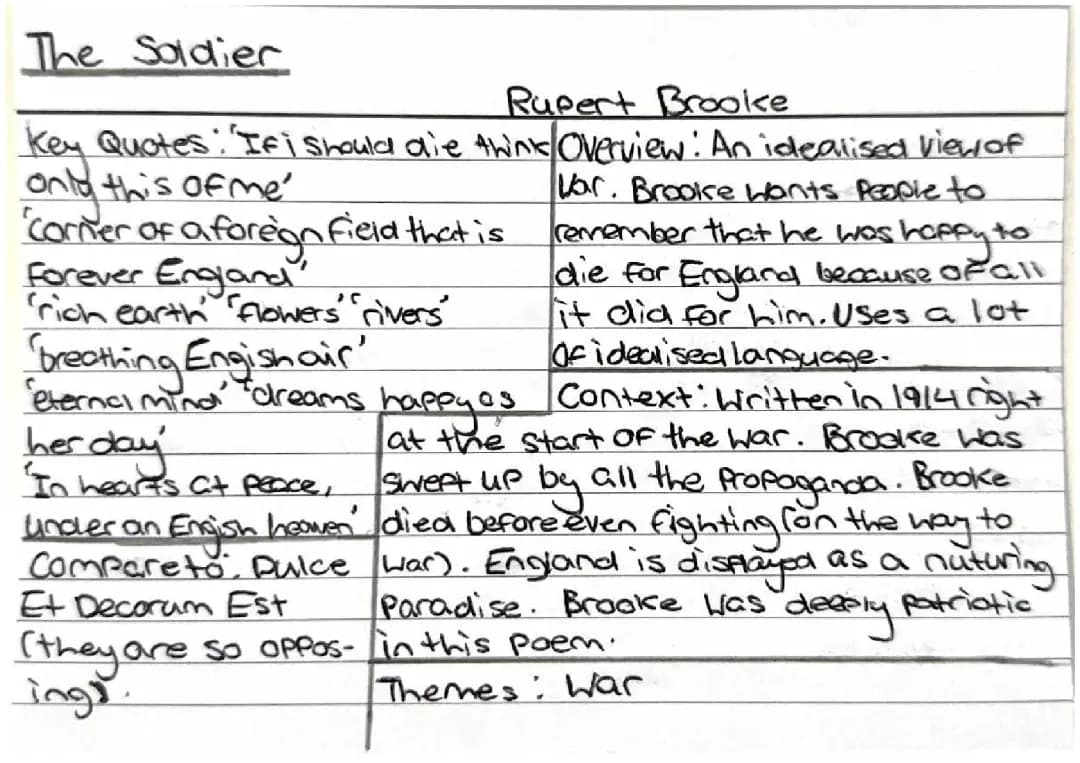 The Soldier
Rupert Brooke
Key Quotes: 'If i should die think
only this of me'
'corner of a foreign field that is
forever England'
'rich earth' 'flowers' 'rivers'
'breathing Engish air'
'eternal mind' 'dreams happy as
her day'
'In hearts at peace,
under an Engish heaven'
Compare to: Dulce
Et Decorum Est
(they are so oppos-
ing).
Overview: An idealised view of
War. Brooke wants people to
remember that he was happy to
die for England because of all
it did for him. Uses a lot
of idealised language.
Context: Written in 1914 right
at the start of the war. Brooke was
swept up by all the propaganda. Brooke
died before even fighting (on the way to
war). England is displayed as a nuturing
paradise. Brooke was deeply patriotic
in this poem.
Themes: War